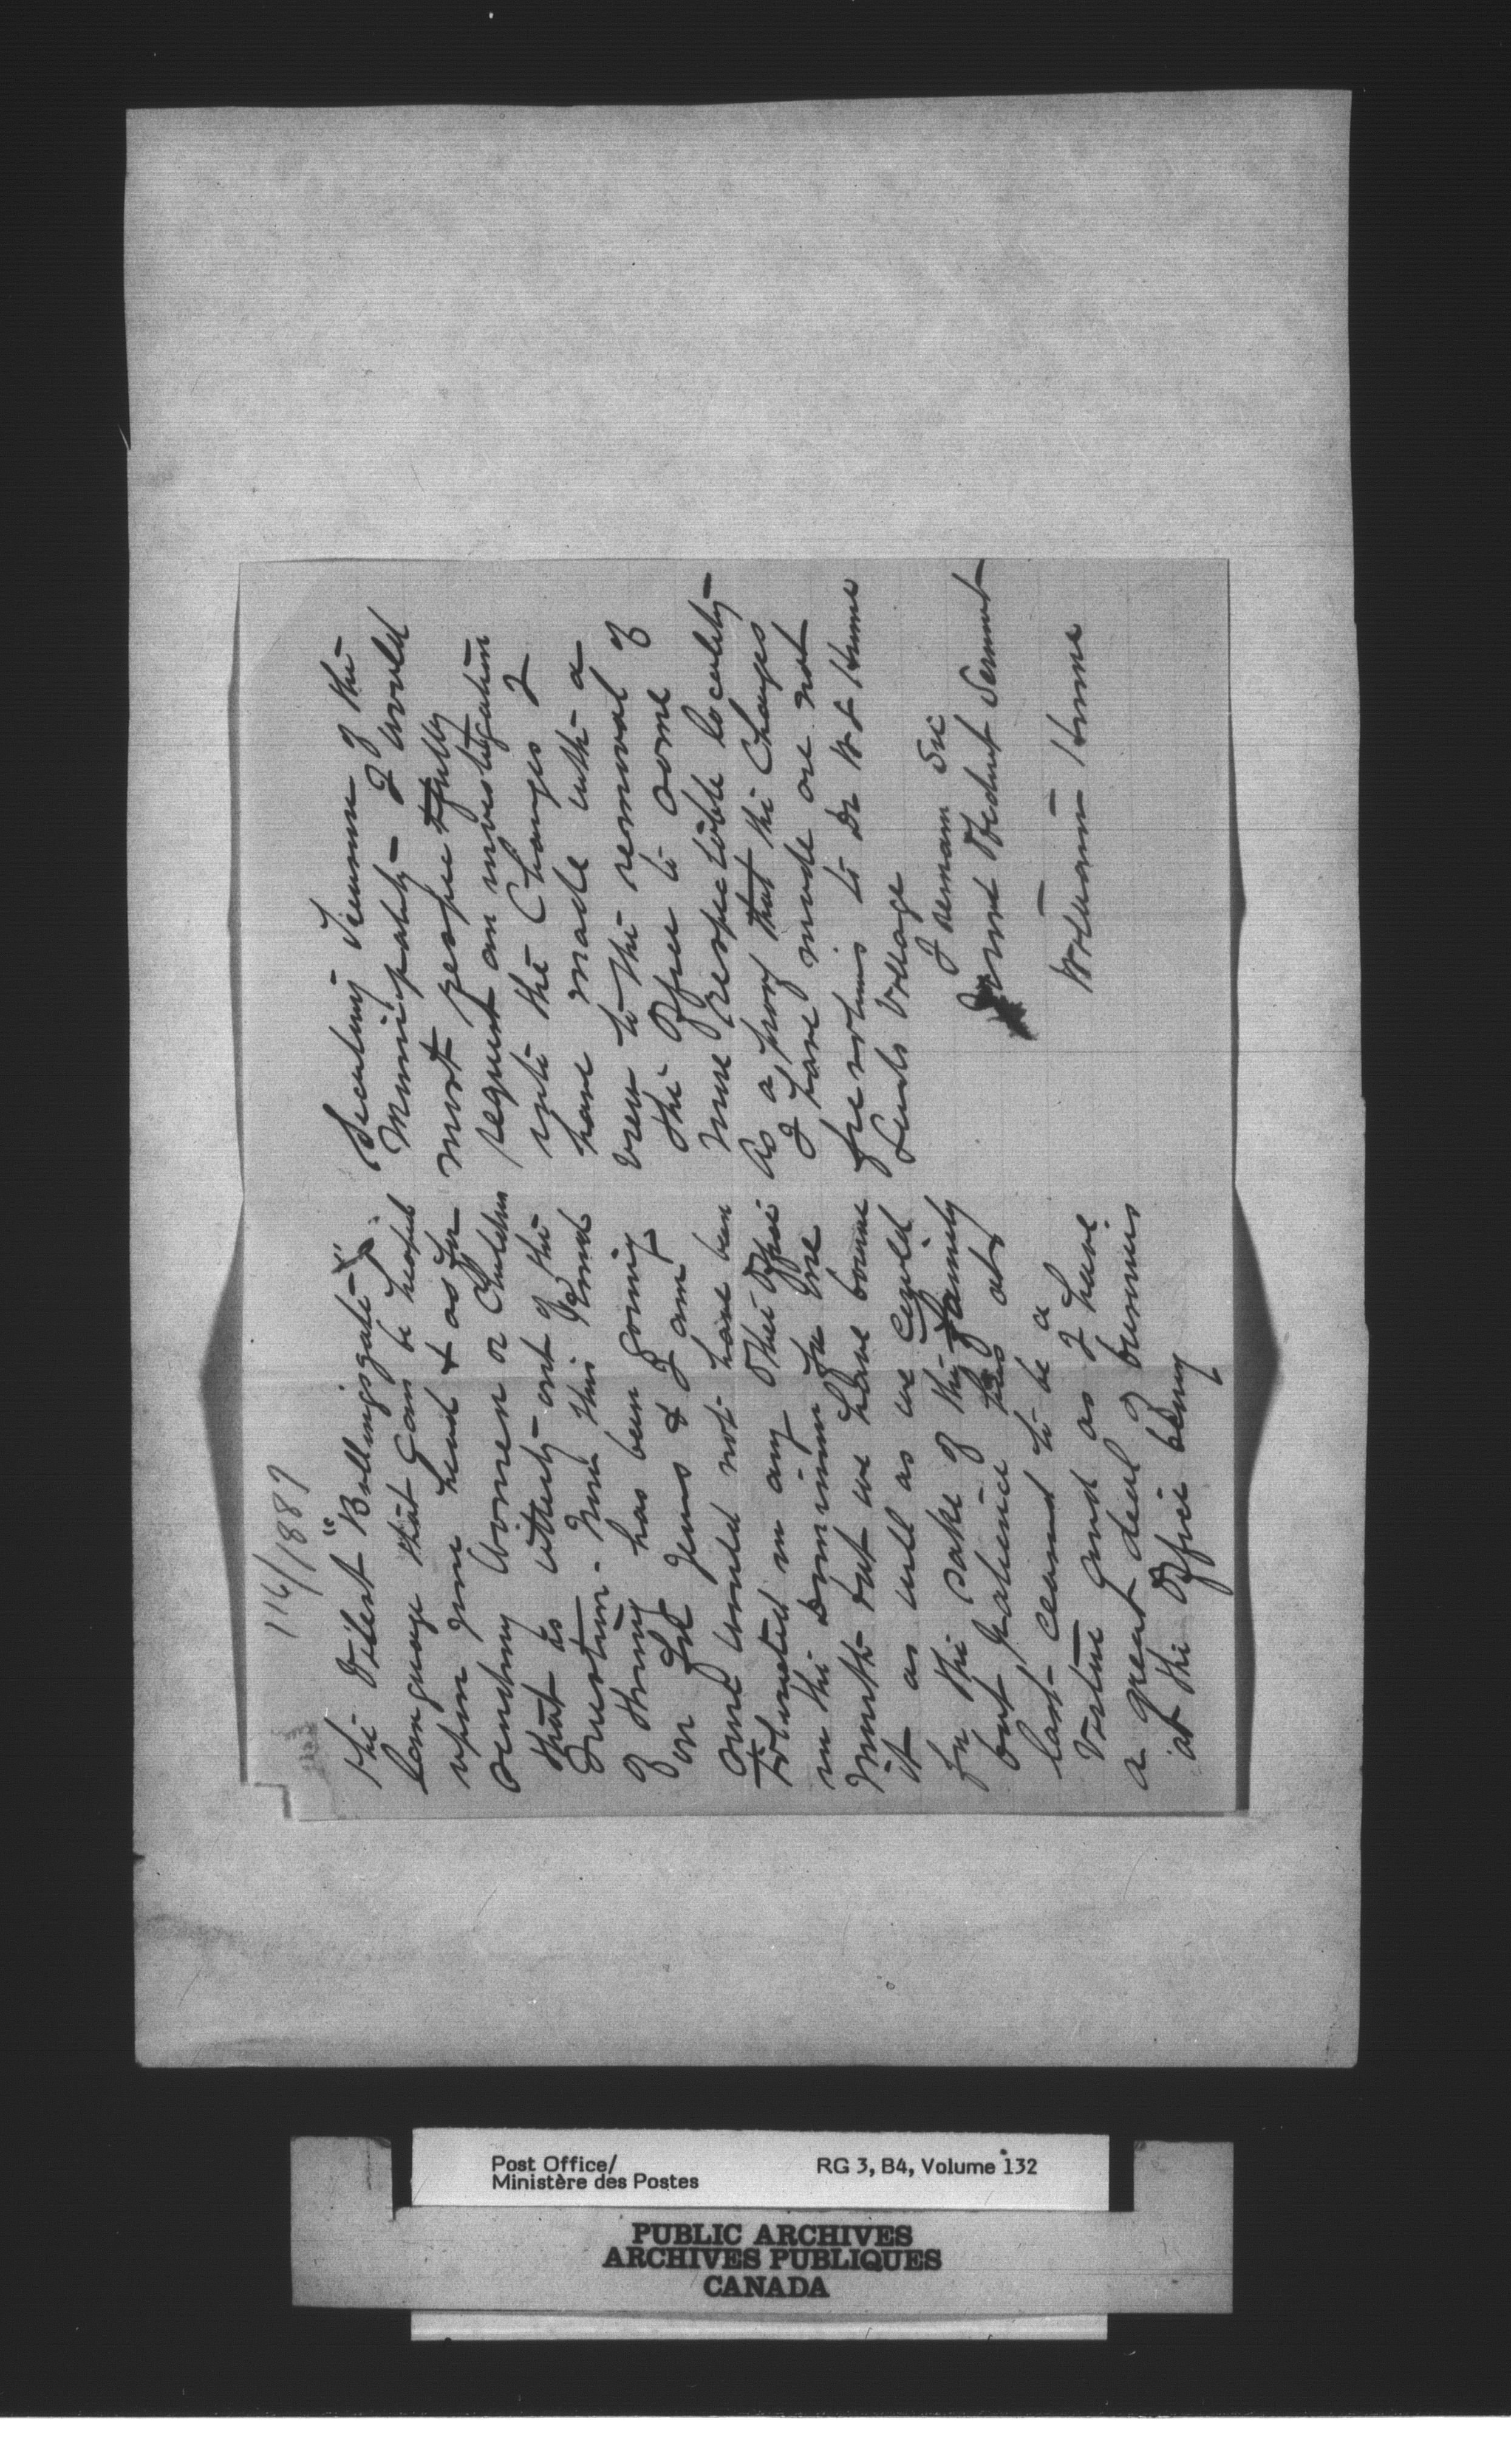 116/1887
the vilest "Billingsgate"
language that can be heaped
upon your head & as for
sending women or Children
that is utterly out of the
Question. Now this kind
of thing has been going
on for years & I am
sure would not have been
tolerated in any other Office
in the Dominion for one
month but we have borne
it as well as we could
for the sake of the family
but patience has at
last ceased to be a
virtue and as I have
a great deal of business
at the Office being
Secretary Treasurer of the
Municipality I would
most respectfully
request an investigation
into the Charges I
have made with a
view to the removal of
the Office to some
more respectable locality
As a proof that the Charges
I have made are not
frivolous to Dr W S Hume
Leeds Village
I remain Sir
Your Obedient Servant
William Hume
Post Office/
Ministère des Postes
RG 3, B4, Volume 132
PUBLIC ARCHIVES
ARCHIVES PUBLIQUES
CANADA